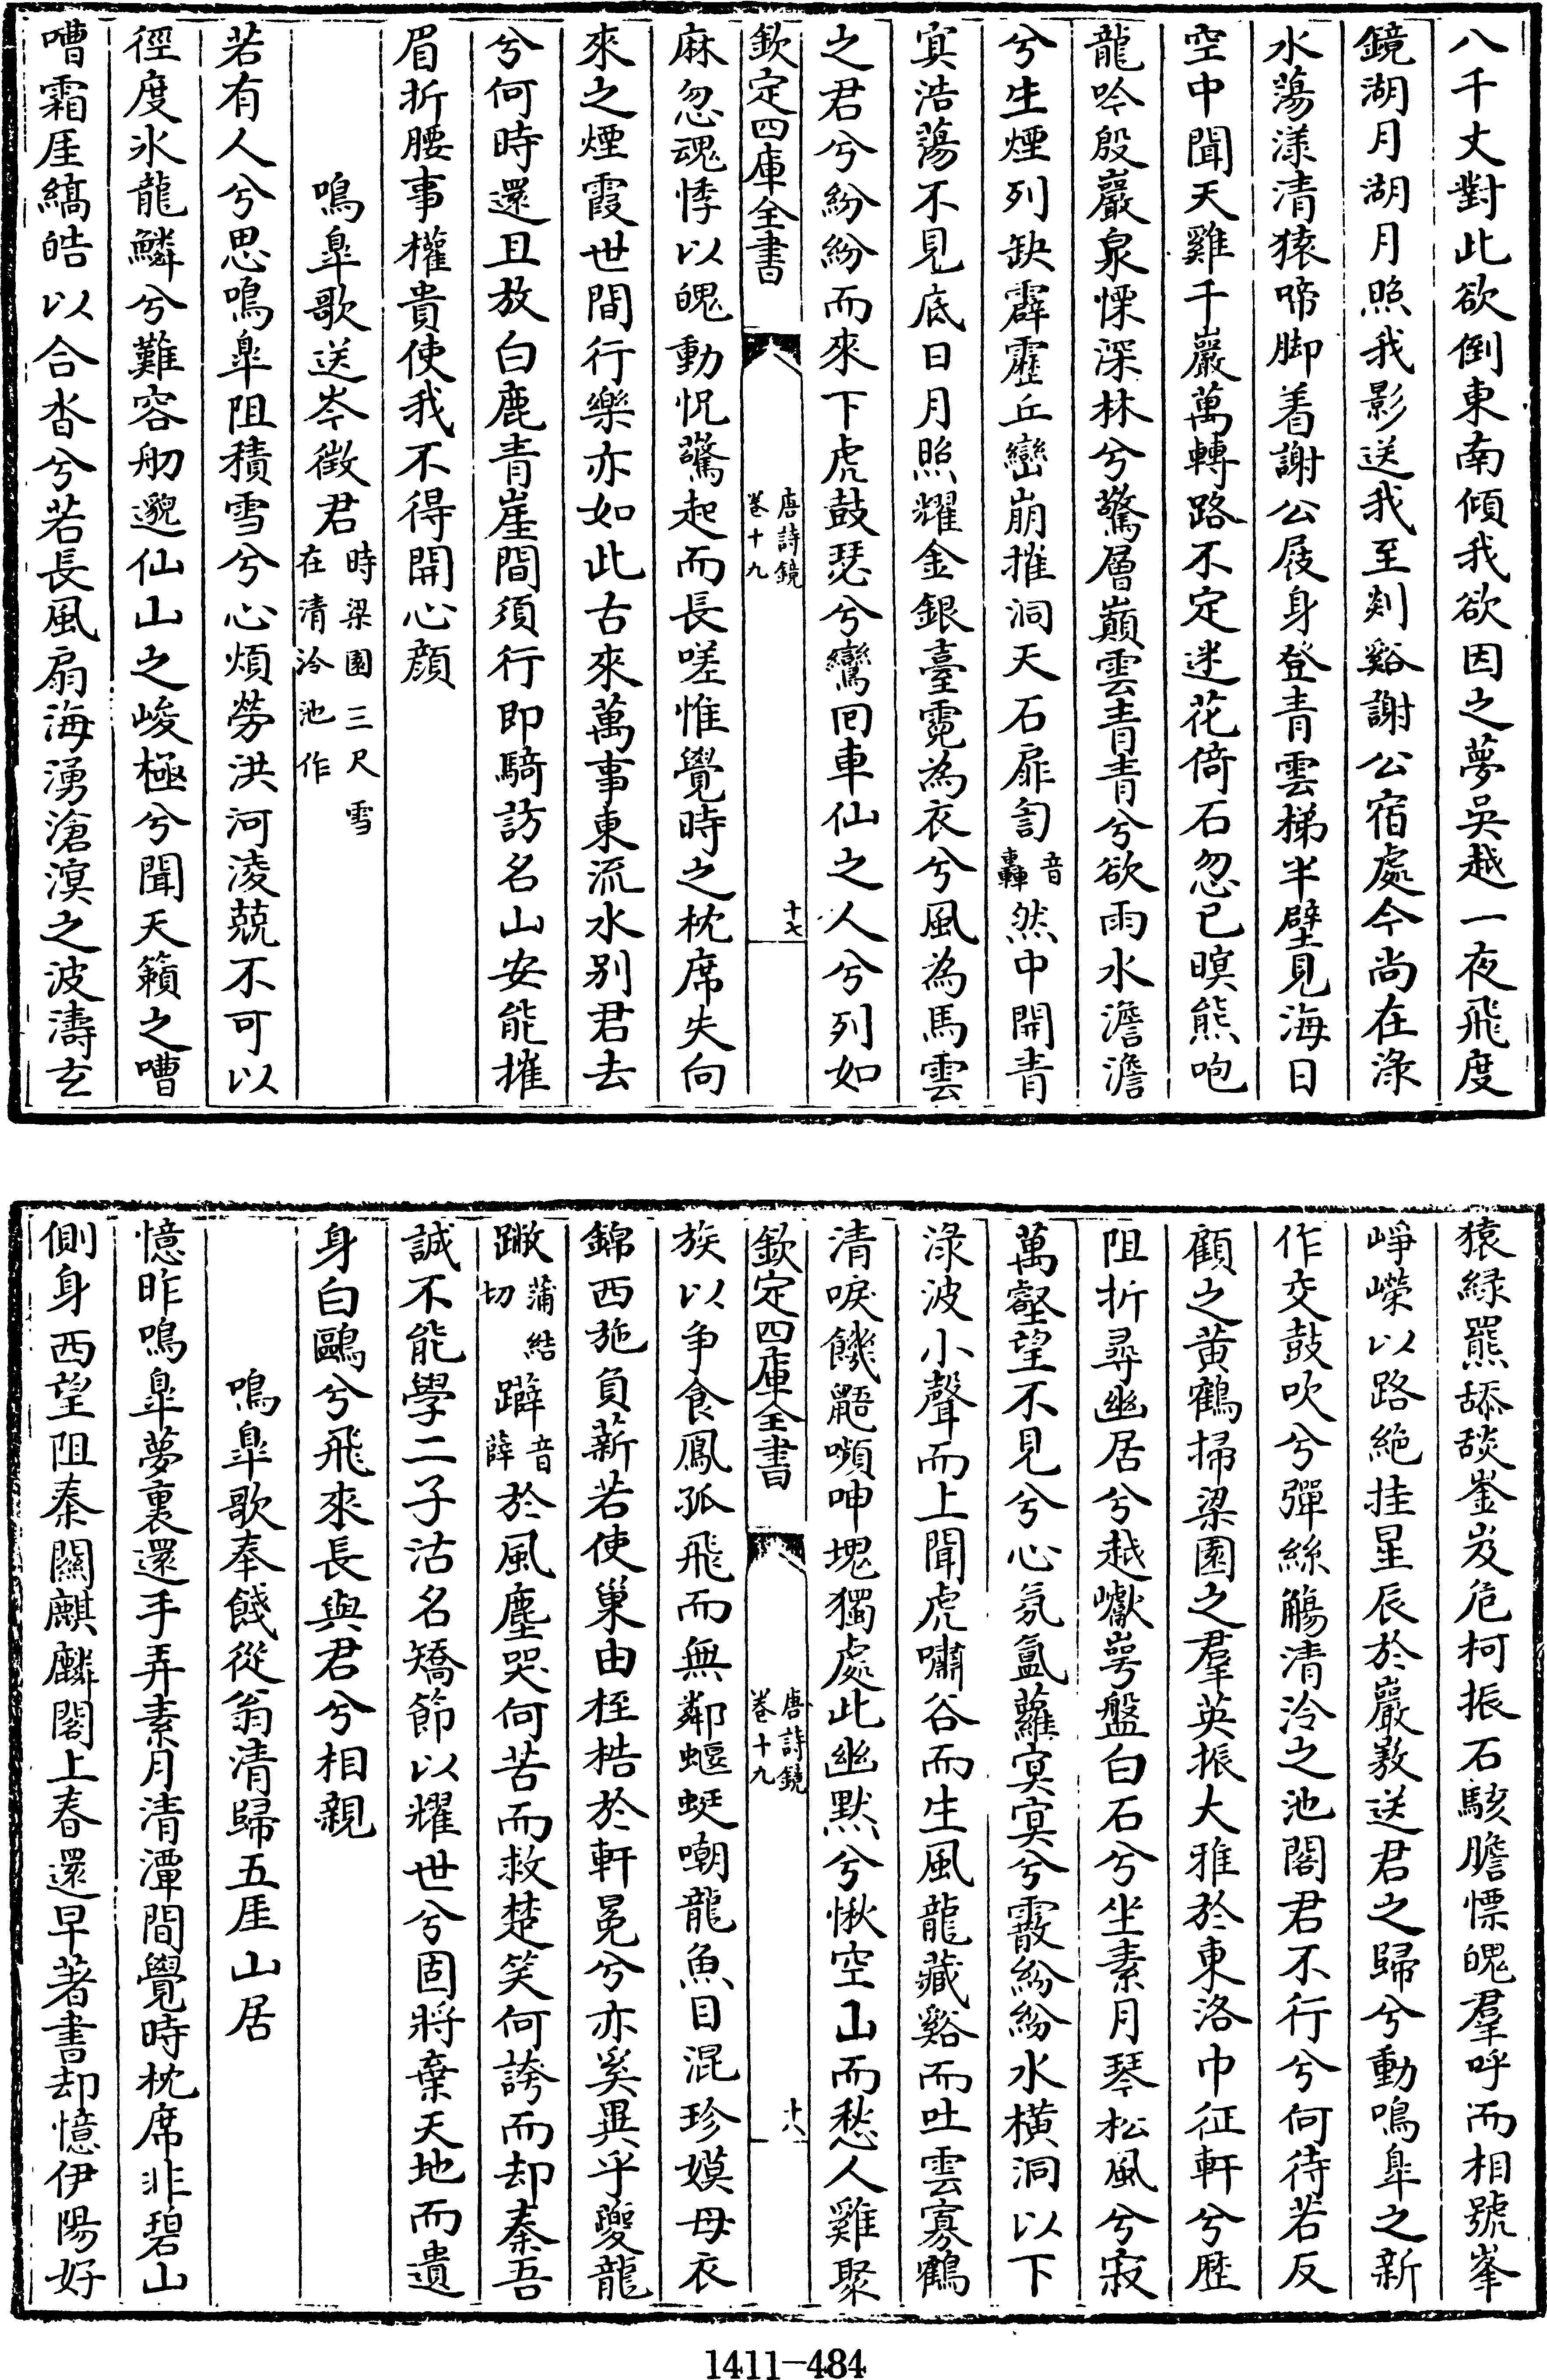 八千丈對此欲倒東南傾我欲因之夢吳越一夜飛度
鏡湖月湖月照我影送我至剡谿謝公宿處今尚在淥
水蕩漾清猿啼脚着謝公屐身登青雲梯半壁見海日
空中聞天雞千巖萬轉路不定迷花倚石忽已暝熊咆
龍吟殷巖泉慄深林兮驚層巔雲青青兮欲雨水澹澹
兮生煙列缺霹靂丘巒崩摧洞天石扉訇音轟然中開青
冥浩蕩不見底日月照耀金銀臺霓為衣兮風為馬雲
之君兮紛紛而來下虎鼓瑟兮鸞回車仙之人兮列如
欽定四庫全書 唐詩鏡 卷十九 十七
麻忽魂悸以魄動怳驚起而長嗟惟覺時之枕席失向
來之煙霞世間行樂亦如此古來萬事東流水別君去
兮何時還且放白鹿青崖間須行即騎訪名山安能摧
眉折腰事權貴使我不得開心顔
鳴臯歌送岑徵君時梁園三尺雪在清泠池作
若有人兮思鳴臯阻積雪兮心煩勞洪河淩兢不可以
徑度氷龍鱗兮難容舠邈仙山之峻極兮聞天籟之嘈
嘈霜厓縞皓以合沓兮若長風扇海湧滄溟之波濤玄
猿緑羆舔舕崟岌危柯振石駭膽慄魄羣呼而相號峯
崢嶸以路絶挂星辰於巖嶅送君之歸兮動鳴臯之新
作交鼓吹兮彈絲觴清泠之池閣君不行兮何待若反
顧之黄鶴掃梁園之羣英振大雅於東洛巾征軒兮歴
阻折尋幽居兮越巘崿盤白石兮坐素月琴松風兮寂
萬壑望不見兮心氛氲蘿冥冥兮霰紛紛水橫洞以下
淥波小聲而上聞虎嘯谷而生風龍藏谿而吐雲寡鶴
清唳饑鼯嚬呻塊獨處此幽默兮愀空山而愁人雞聚
欽定四庫全書 唐詩鏡 卷十九 十八
族以争食鳳孤飛而無鄰蝘蜓嘲龍魚目混珍嫫母衣
錦西施負薪若使巢由桎梏於軒冕兮亦奚異乎夔龍
蹩蒲結切躃音薛於風塵哭何苦而救楚笑何誇而却秦吾
誠不能學二子沽名矯節以耀世兮固將棄天地而遺
身白鷗兮飛來長與君兮相親
鳴臯歌奉餞從翁清歸五厓山居
憶昨鳴臯夢裏還手弄素月清潭間覺時枕席非碧山
側身西望阻秦關麒麟閣上春還早著書却憶伊陽好
1411-484